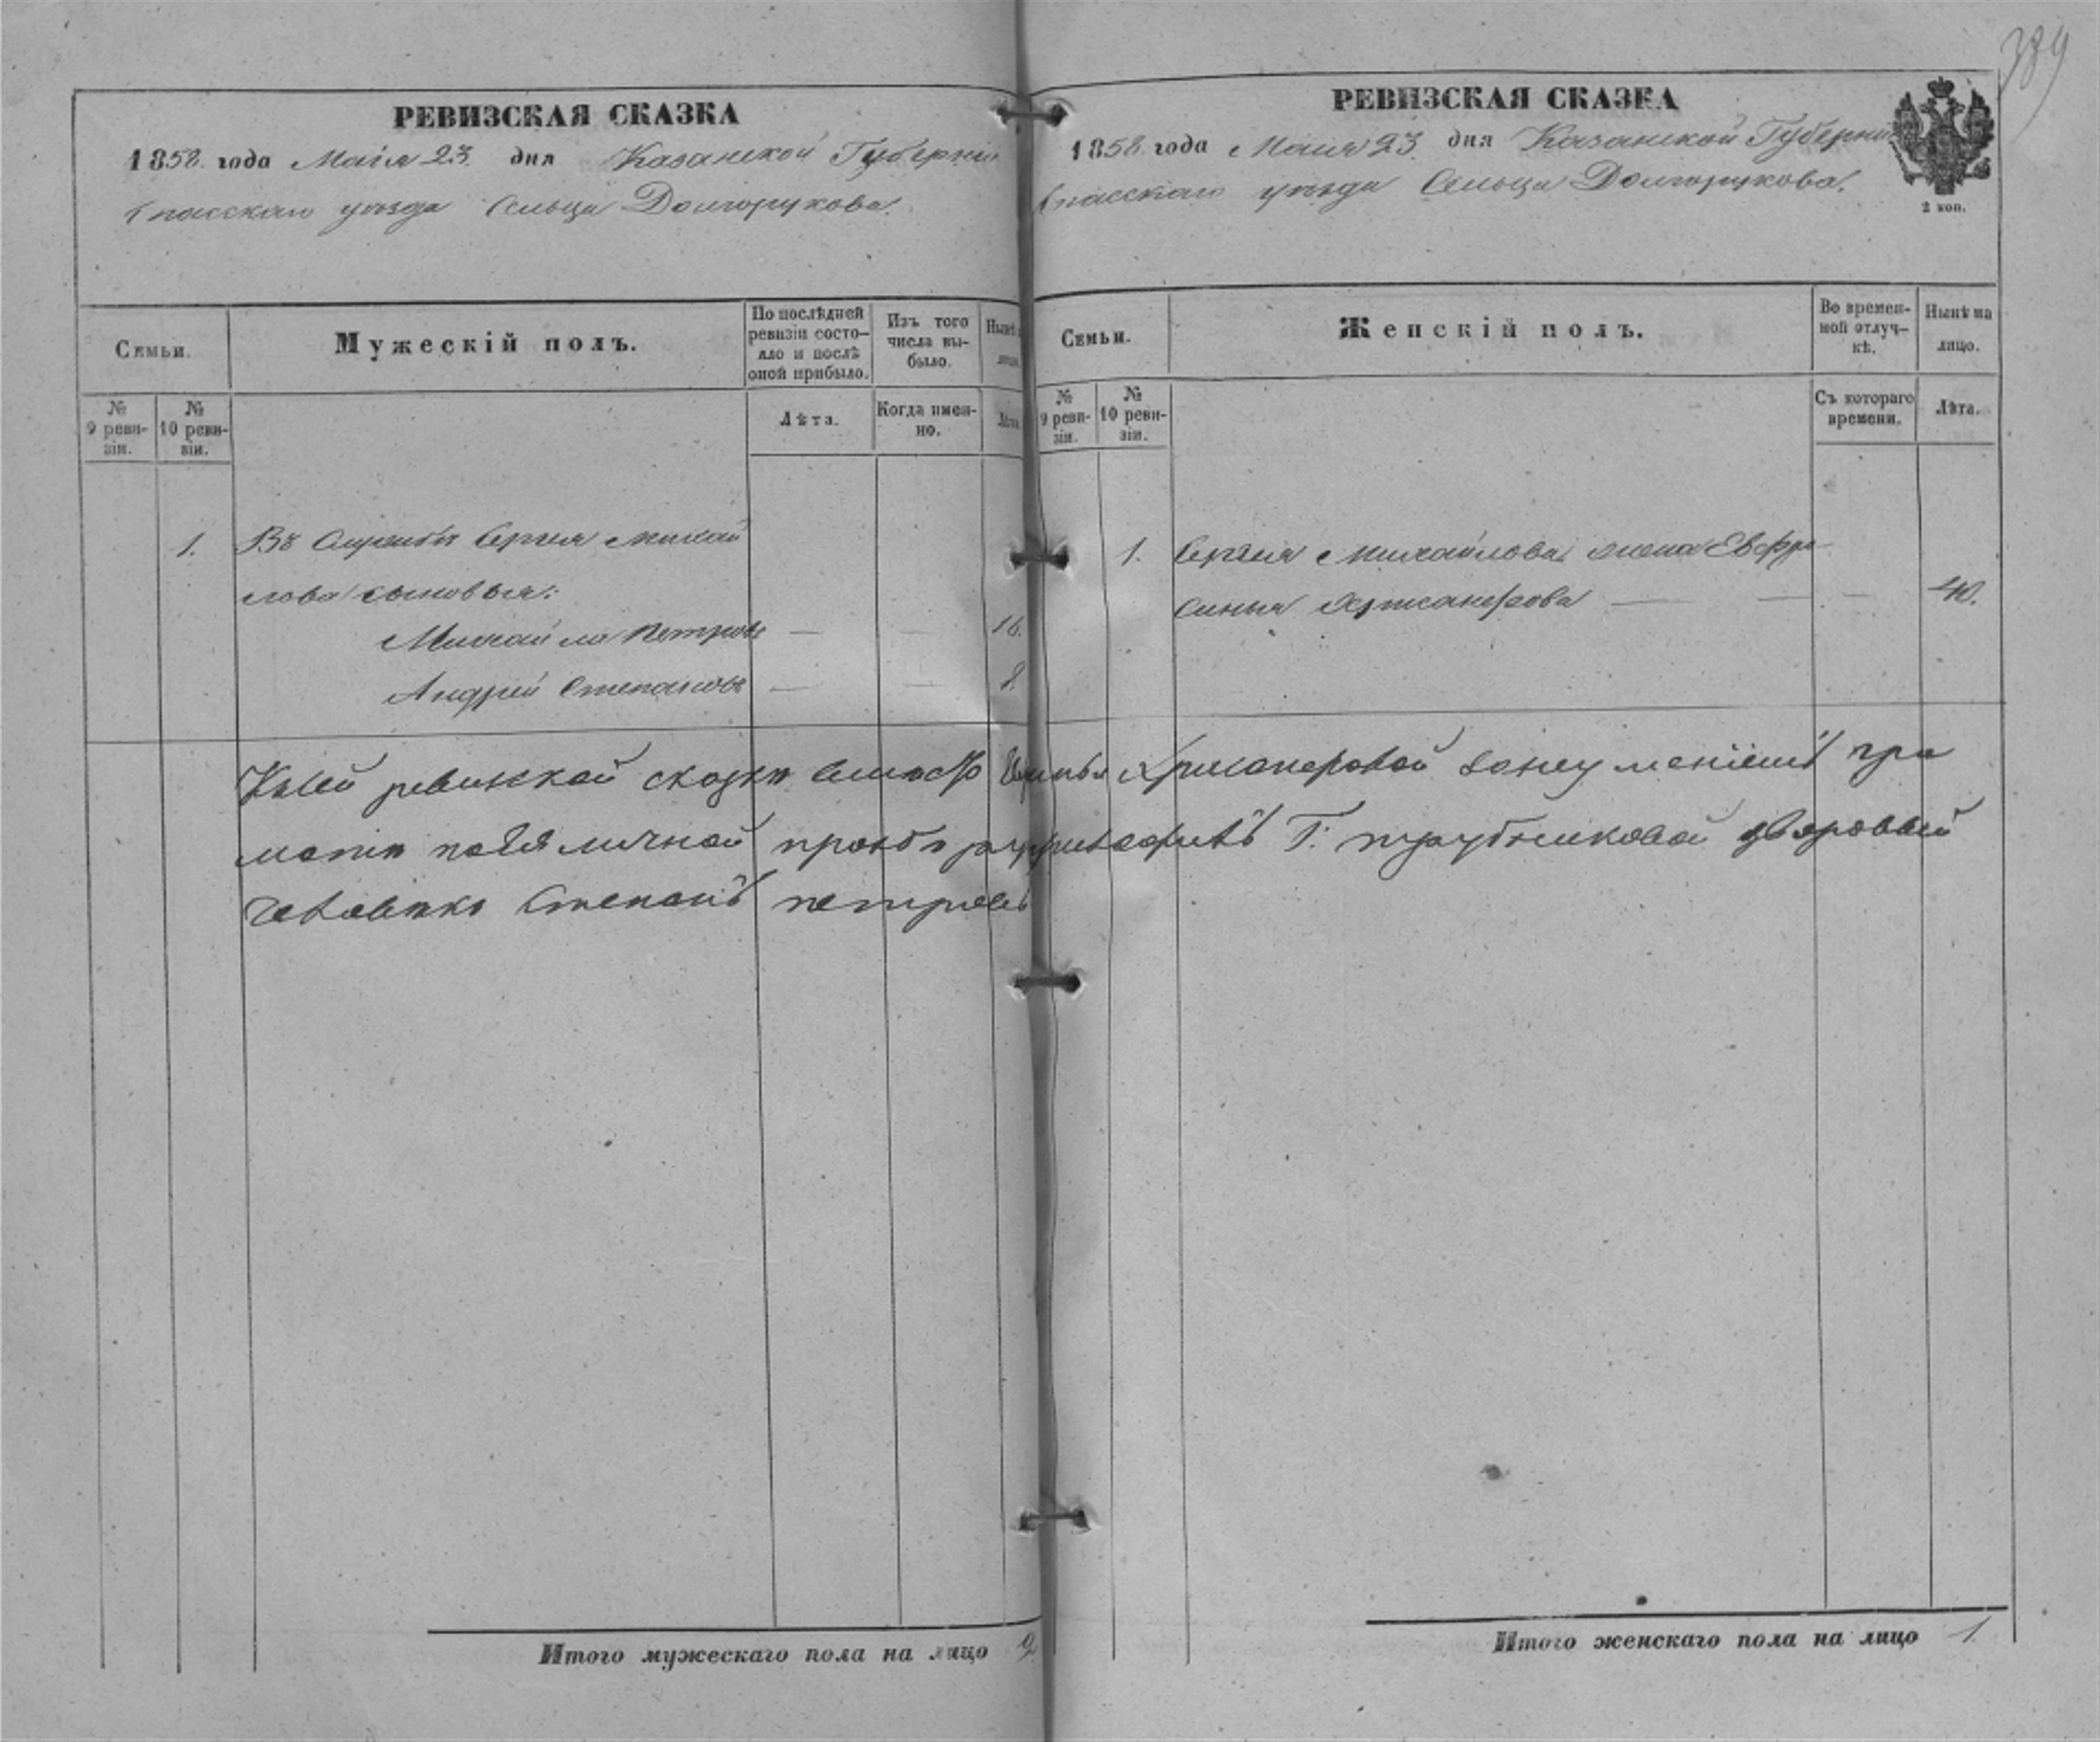 389
РЕВИЗСКАЯ СКАЗКА
1858 года Маія 23 дня Казанской Губерніи
Спасскаго уѣзда Сельца Долгорукова.
Семьи.
Мужескій полъ.
По послѣдней ревизіи состояло и послѣ оной прибыло.
Изъ того числа выбыло.
Нынѣ
№ 9 ревизіи.
№ 10 ревизіи.
Лѣта.
Когда именно.
Лѣта
1. Въ Сергея Михай
лова сыновья:
Михайла Петровъ — — 16.
Андрей Степановъ — — 8
РЕВИЗСКАЯ СКАЗКА
1858 года Маія 23 дня Казанской Губерніи
Спасскаго уѣзда Сельца Долгорукова.
2 коп.
Семьи.
Женскій полъ.
Во временной отлучкѣ.
Нынѣ на лицо.
№ 9 ревизіи.
№ 10 ревизіи.
Съ котораго времени.
Лѣта.
1. Сергея Михайлова жена Евфро
синья — — — 40.
ревизкой сказки
грамоти личной Г. Трубниковой дворовый
Степанъ петровъ
Итого мужескаго пола на лицо 2
Итого женскаго пола на лицо 1